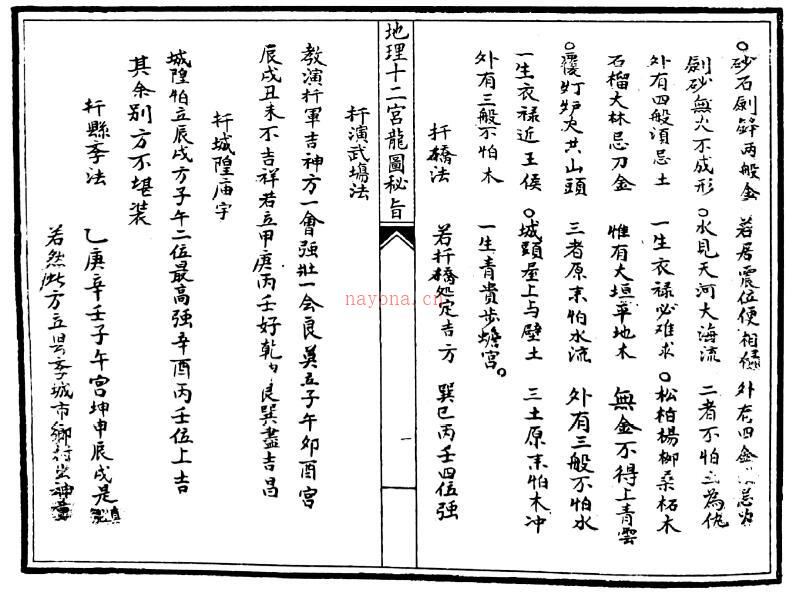 ○砂石劍鋒兩般金 若居震位便相 外有四金 忌火
劍砂無火不成形 ○水見天河大海流 二者不怕土為仇
外有四般須忌土 一生衣禄必难求 ○松柏楊柳桑柘木
石榴大林忌刀金 惟有大垣平地木 無金不得上青雲
○覆灯炉火共山頭 三者原来怕水流 外有三般不怕水
一生衣禄近王侯 ○城頭屋上与壁土 三土原来怕木冲
外有三般不怕木 一生青贵步蟾宮。
扦橋法 若扦橋 定吉方 巽巳丙壬四位强
地理十二宮龍圖秘旨
一
扦演武塲法
教演扦軍吉神方一會强壯一会良 其立子午卯酉宮
辰戌丑未不吉祥若立甲庚丙壬好乾 艮巽盡吉昌
扦城隍庙宇
城隍怕立辰戌方子午二位最高强辛酉丙壬位上吉
其余别方不堪装
扦縣李法 乙庚辛壬子午宮坤申辰戌是真
若然此方立 李城市鄉村出神童
nayona.cn